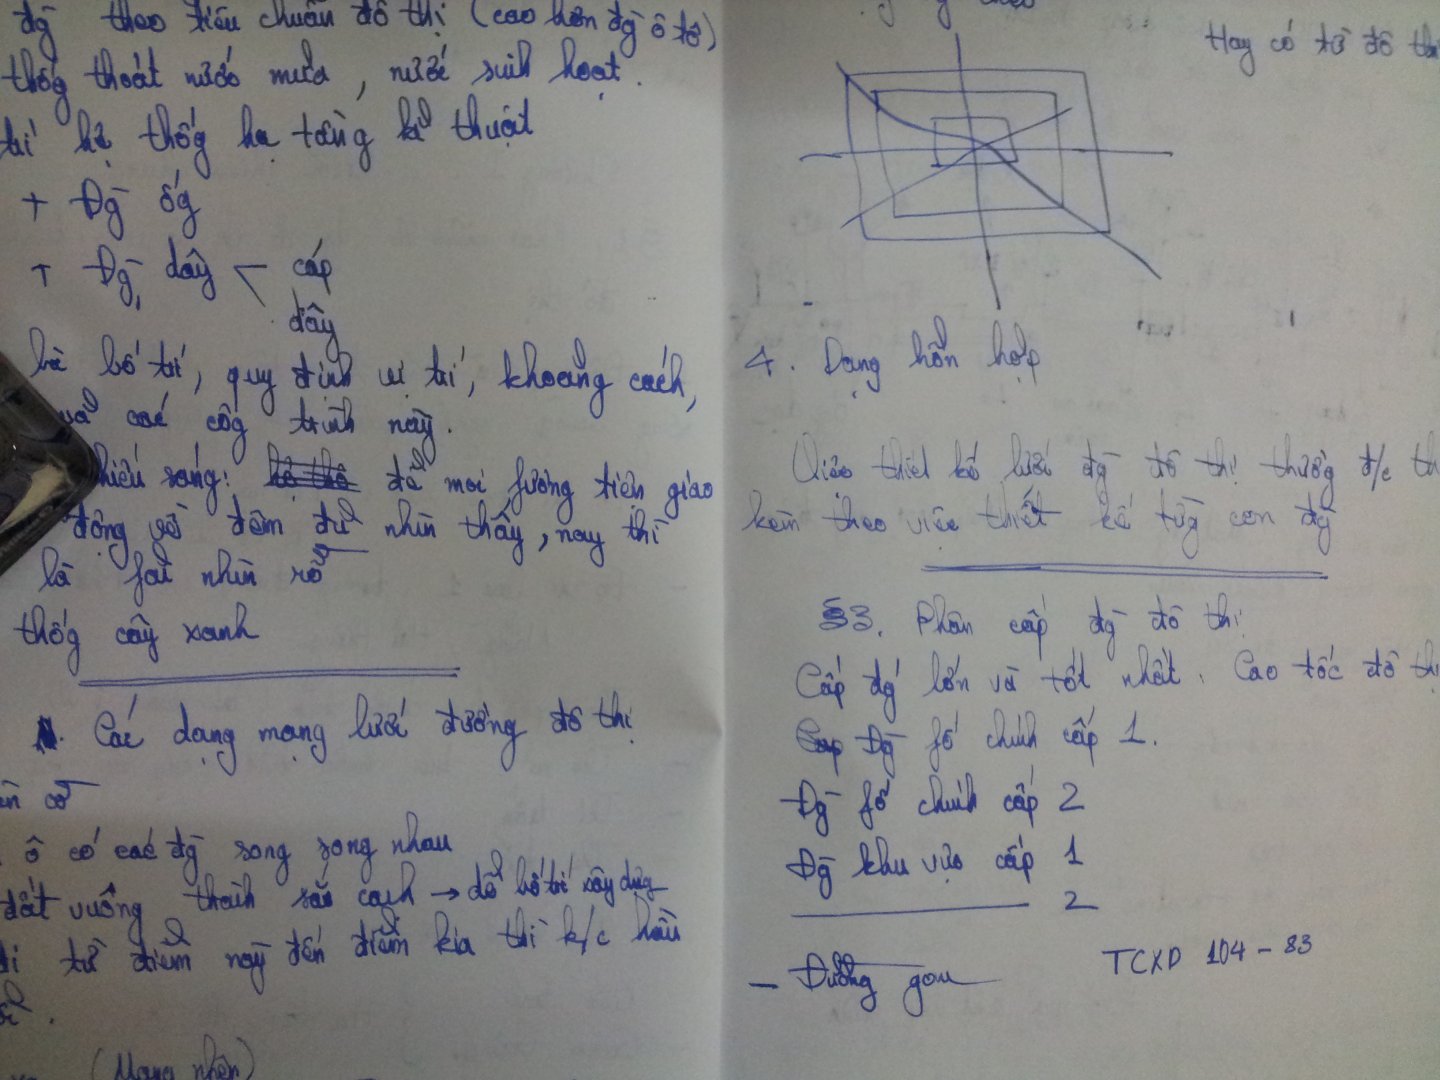 đg̀ theo tiêu chuẩn đô thị (cao hơn đg̀ ô tô)
thốg thoát nước mưa, nước sinh hoạt.
trí hệ thốg hạ tầng kĩ thuật
+ Đg̀ ốg
+ Đg̀ dây cáp
dây
bố trí, quy định vị trí, khoảng cách,
các côg trình này.
chiếu sáng: hệ thô để mọi fương tiện giao
động về đêm đủ nhìn thấy, nay thì
là fải nhìn rõ
thốg cây xanh
Các dạng mạng lưới đường đô thị
ô có các đg̀ song song nhau
đất vuông thành sắc cạnh → dễ bố trí xây dựng
đi từ điểm này đến điểm kia thì k/c
(Mạng nhện)
Hay có từ đô thị
4. Dạng hỗn hợp
Việc thiết kế lưới đg̀ đô thị thường đ/c
kèm theo việc thiết kế từg con đg̀
§3. Phân cấp đg̀ đô thị
Cấp đg̀ lớn và tốt nhất. Cao tốc đô thị
Đg̀ fố chính cấp 1.
Đg̀ fố chính cấp 2
Đg̀ khu vực cấp 1
2
TCXD 104 - 83
- Đường gom